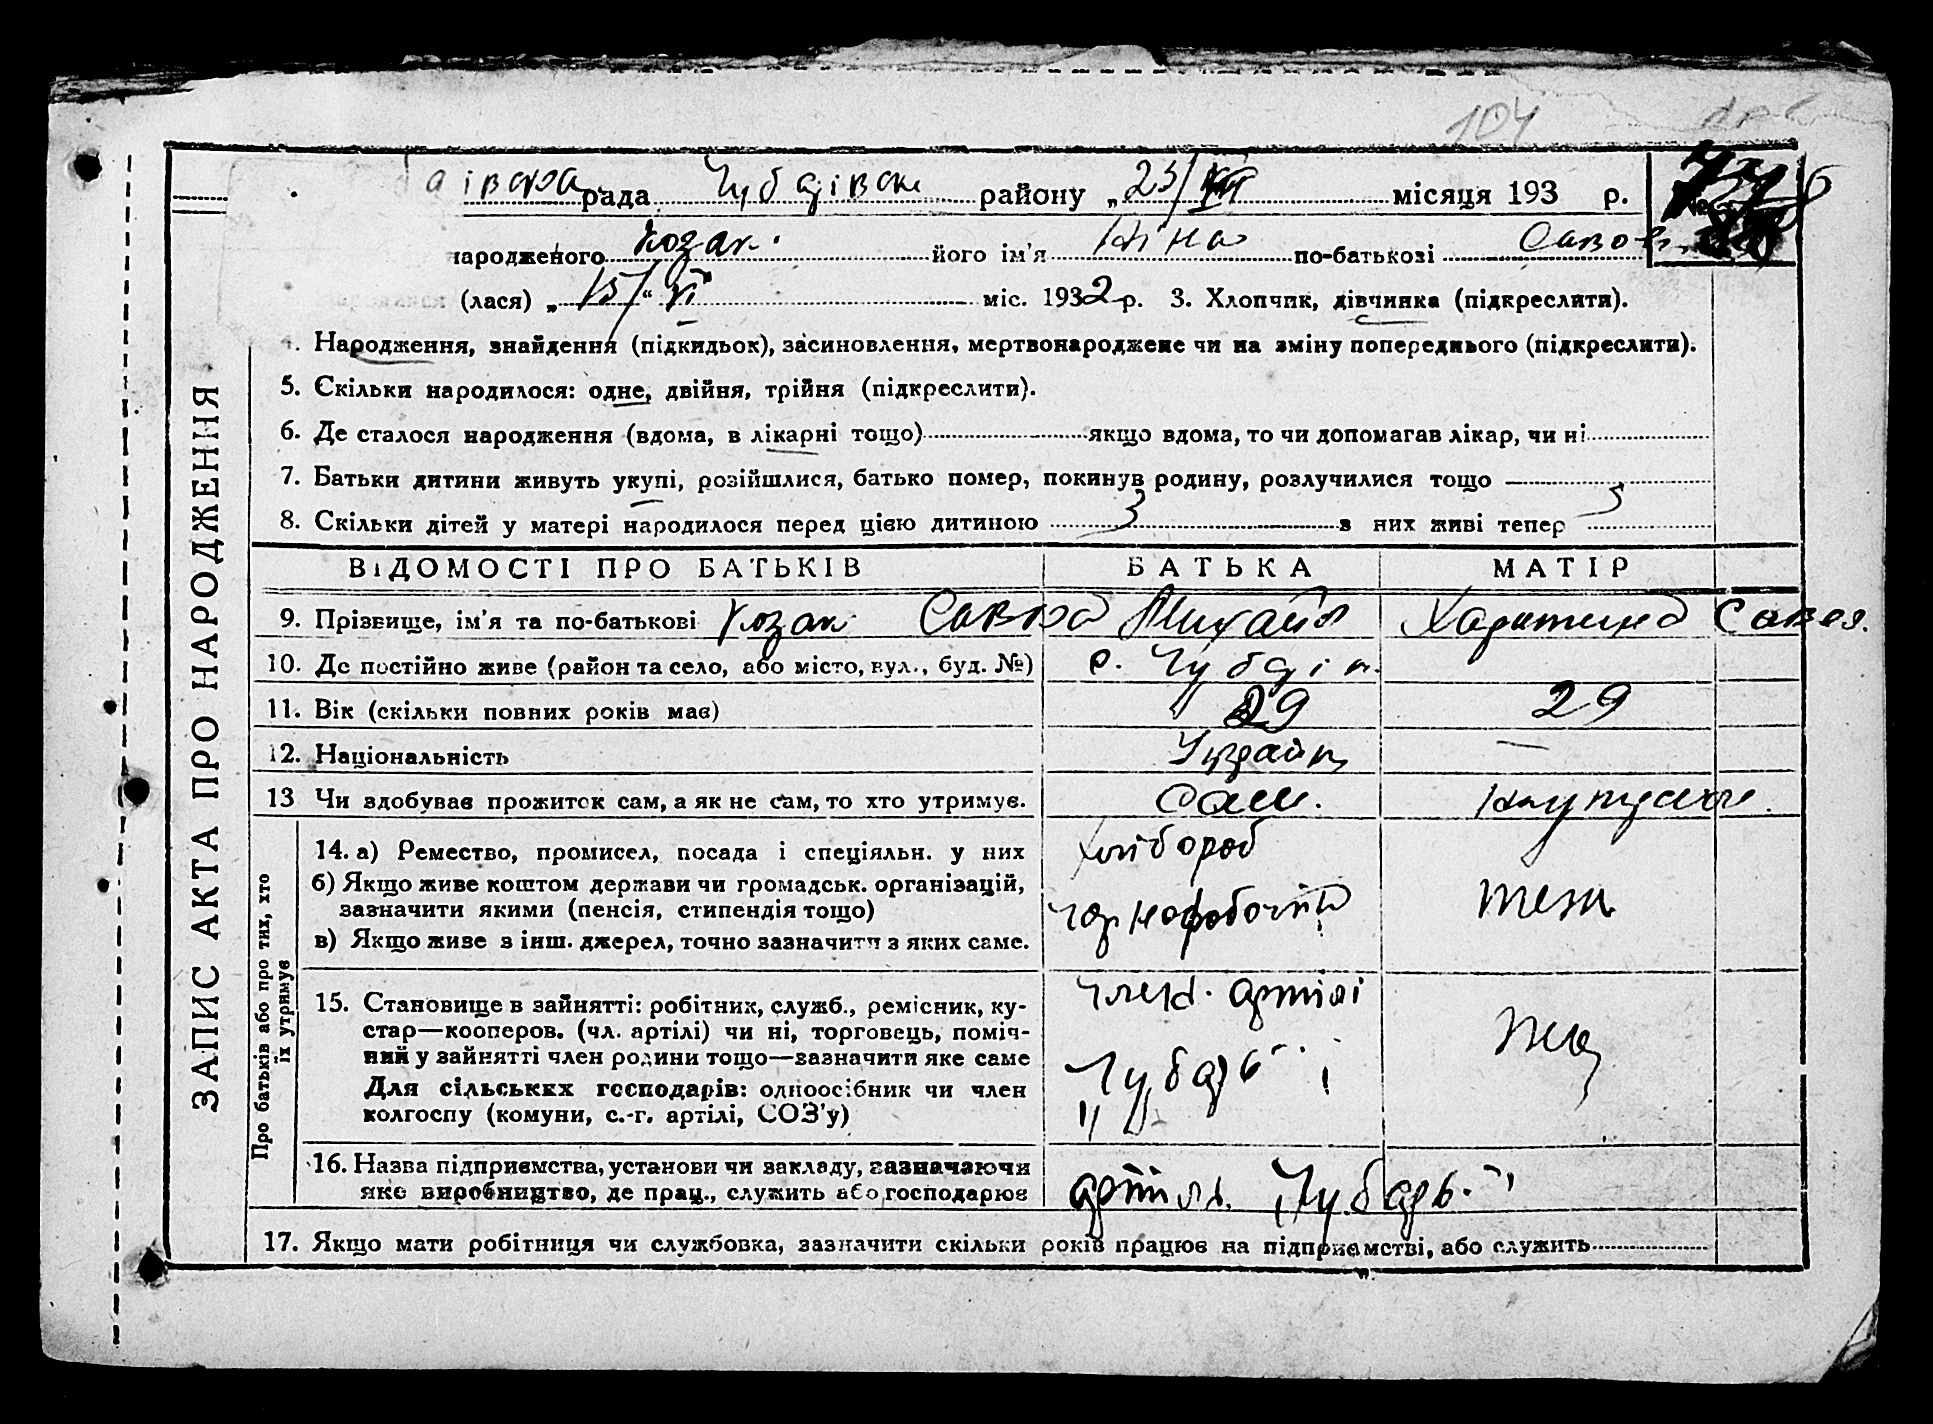 104
рада Чубарівськ району „23/VII місяця 193 р. №
народженого Козак. його ім'я Ніна по-батькові Савов.
(лася) „15/“ VI міс. 1932 р. 3. Хлопчик, дівчинка (підкреслити).
4. Народження, знайдення (підкидьок), засиновлення, мертвонароджене чи на зміну попереднього (підкреслити).
5. Скільки народилося: одне, двійня, трійня (підкреслити).
6. Де сталося народження (вдома, в лікарні тощо) якщо вдома, то чи допомагав лікар, чи ні
7. Батьки дитини живуть укупі, розійшлися, батько помер, покинув родину, розлучилися тощо
8. Скільки дітей у матері народилося перед цією дитиною 3 з них живі тепер 3
ЗАПИС АКТА ПРО НАРОДЖЕННЯ
ВІДОМОСТІ ПРО БАТЬКІВ БАТЬКА МАТІР
9. Прізвище, ім'я та по-батькові Козак Савка Михайл Харитина Савел.
10. Де постійно живе (район та село, або місто, вул., буд. №) с. Чубарівк.
11. Вік (скільки повних років має) 29 29
12. Національність Украйн —
13 Чи здобував прожиток сам, а як не сам, то хто утримує. Сам.
Про батьків або про тих, хто їх утримує
14. а) Ремество, промисел, посада і спеціяльн. у них хлібороб
б) Якщо живе коштом держави чи громадськ. організацій,
зазначити якими (пенсія, стипендія тощо) чорнороботній теж
в) Якщо живе з інш. джерел, точно зазначити з яких саме.
15. Становище в зайнятті: робітник, служб., ремісник, ку- член. артілі
стар—кооперов. (чл. артілі) чи ні, торговець, поміч-
ний у зайнятті член родини тощо—зазначити яке саме теж
Для сільських господарів: одноосібник чи член Чубарь
колгоспу (комуни, с.-г. артілі, СОЗ'у)
16. Назва підприємства, установи чи закладу, зазначаючи
яке виробництво, де прац., служить або господарює артіль. Чубарь.
17. Якщо мати робітниця чи службовка, зазначити скільки років працює на підприємстві, або служить